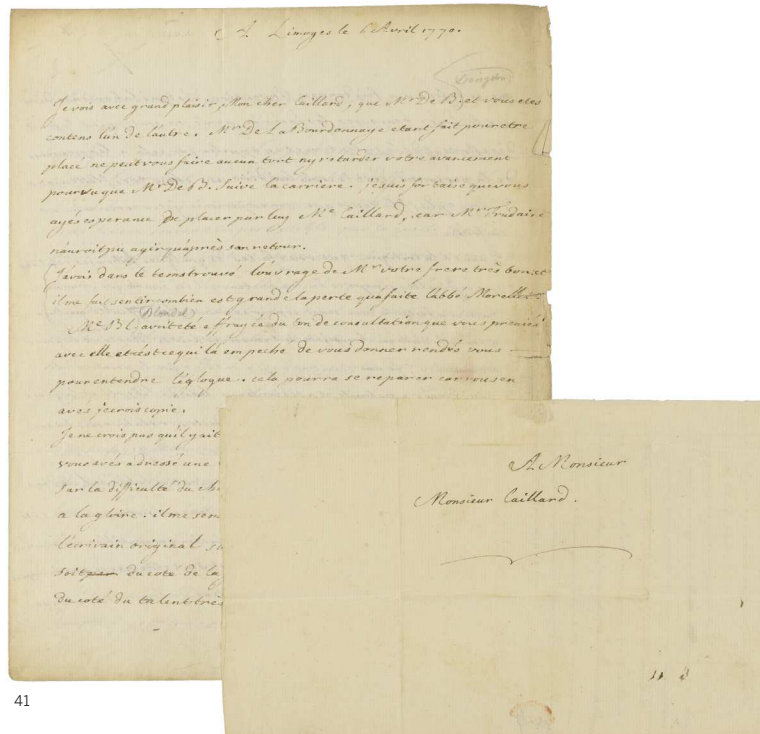 A Limoges le 6 Avril 1770.
Je vois avec grand plaisir, Mon cher Caillard, que Mr De B. et vous etes
contens lun de lautre. Mr De La Bourdonnaye etant fait pour etre
placé ne peut vous faire aucun tort ny retarder votre avancement
pourvu que Mr De B. suive la carriere. je suis fort aise que vous
ayés esperance de placer par luy Mr Caillard, car Mr Trudaine
nauroit pu agir quaprès son retour.
J'avois dans le tems trouvé louvrage de Mr votre frere très bon, et
il me fait sentir combien est grande la perte qu'a faite l'abbé Morellet.
(Blondel)
Me Bl. avoit eté effrayée du ton de consultation que vous preniés
avec elle et cest ce qui la empeché de vous donner rendés vous
pour entendre l'eglogue. cela pourra se reparer car vous en
avés je crois copie.
Je ne crois pas quil y ait
vous avés adressé une
sur la difficulté du
a la gloire. il me
l'ecrivain original
soit du coté de la
du coté du talent très
A Monsieur
Monsieur Caillard.
41